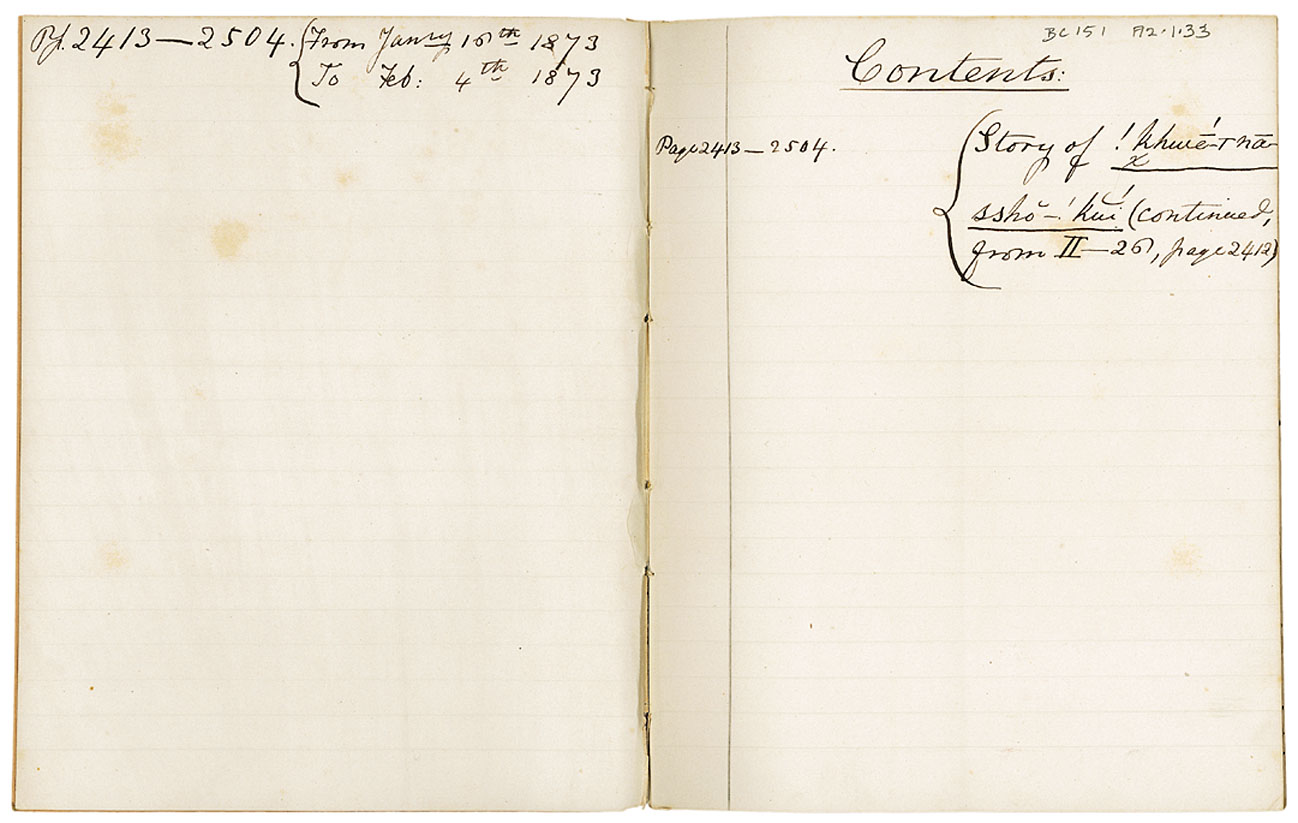 Pp. 2413—2504. From Janry 16th 1873
To Feb: 4th 1873
BC 151 A2.1.33
Contents:
Page 2413—2504.
Story of
(continued,
from II—26, page 2412)